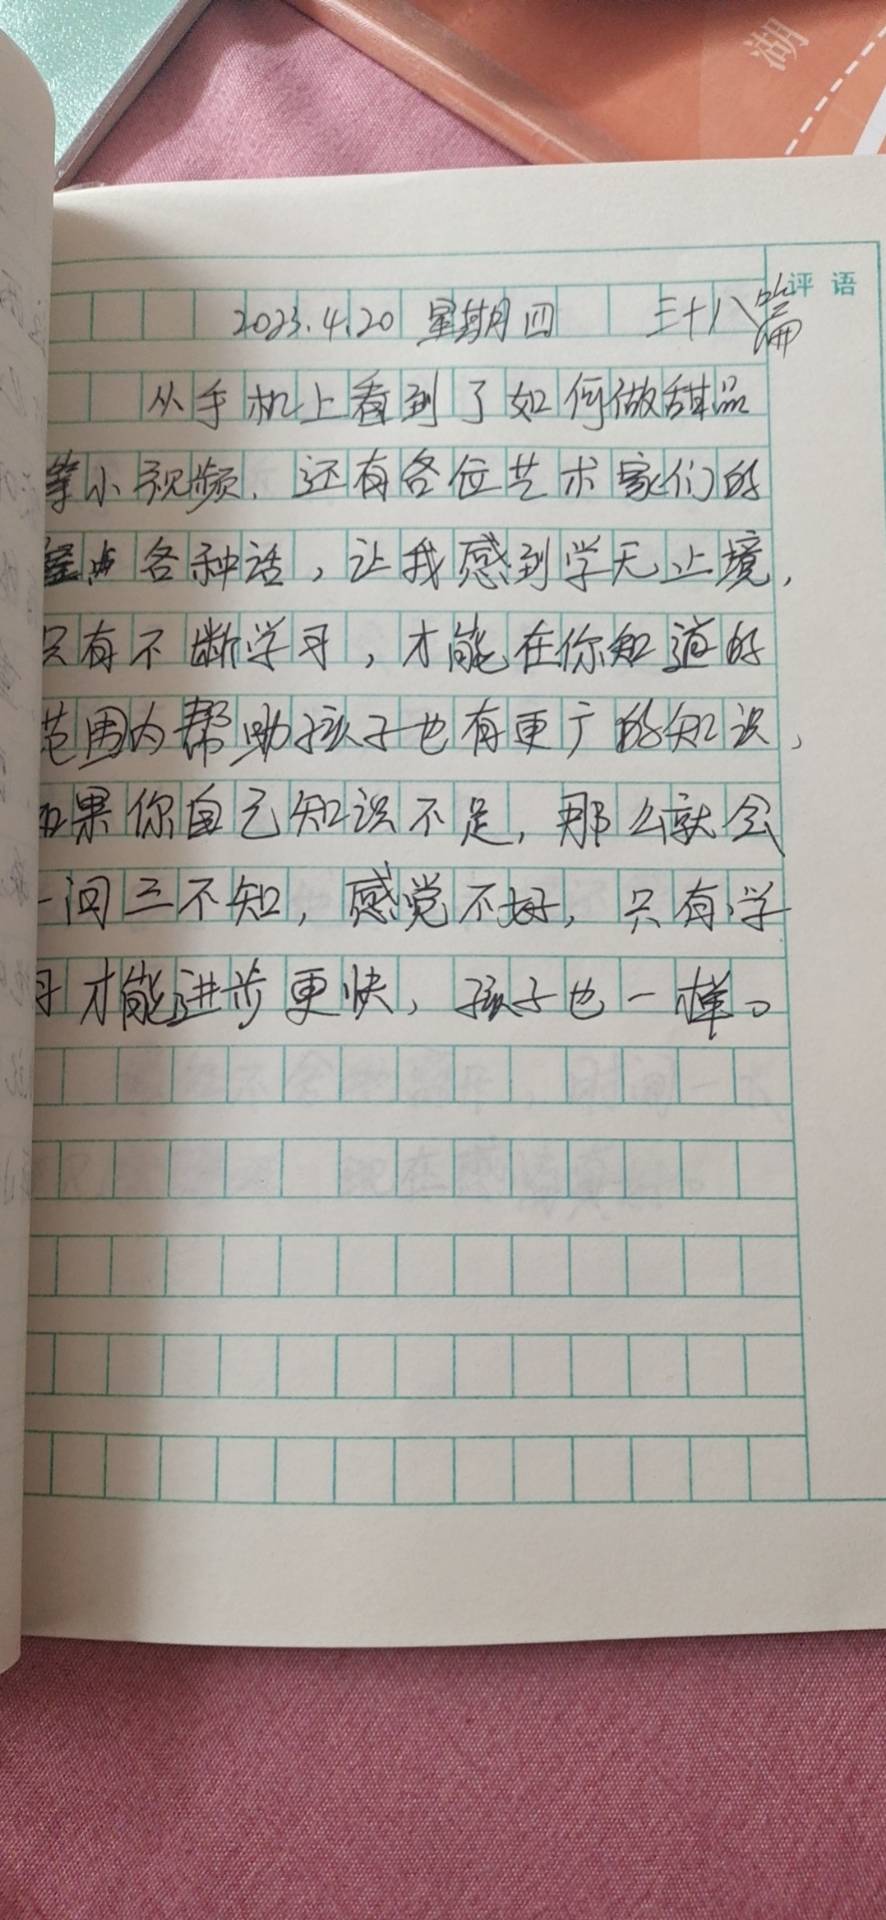 湖
评语
2023.4.20 星期四 三十八篇
从手机上看到了如何做甜品
等小视频.还有各位艺术家们的
各种话，让我感到学无止境，
只有不断学习，才能在你知道的
范围内帮助孩子也有更广的知识，
如果你自己知识不足，那么就会
一问三不知，感觉不好，只有学
习才能进步更快，孩子也一样。